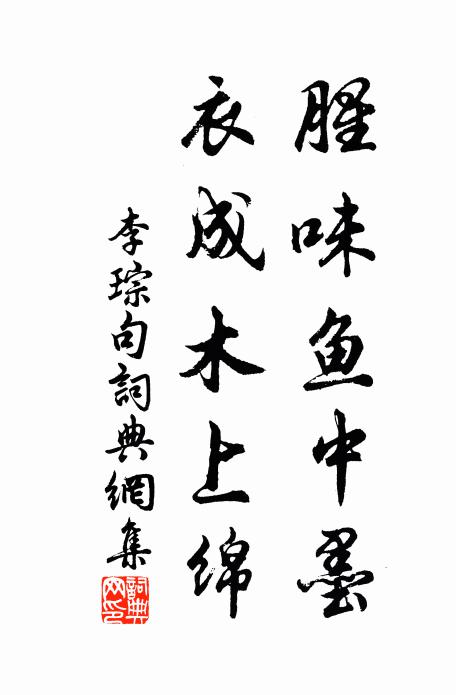 腥味鱼中墨
衣成木上绵
李琮句詞典網集
詞典